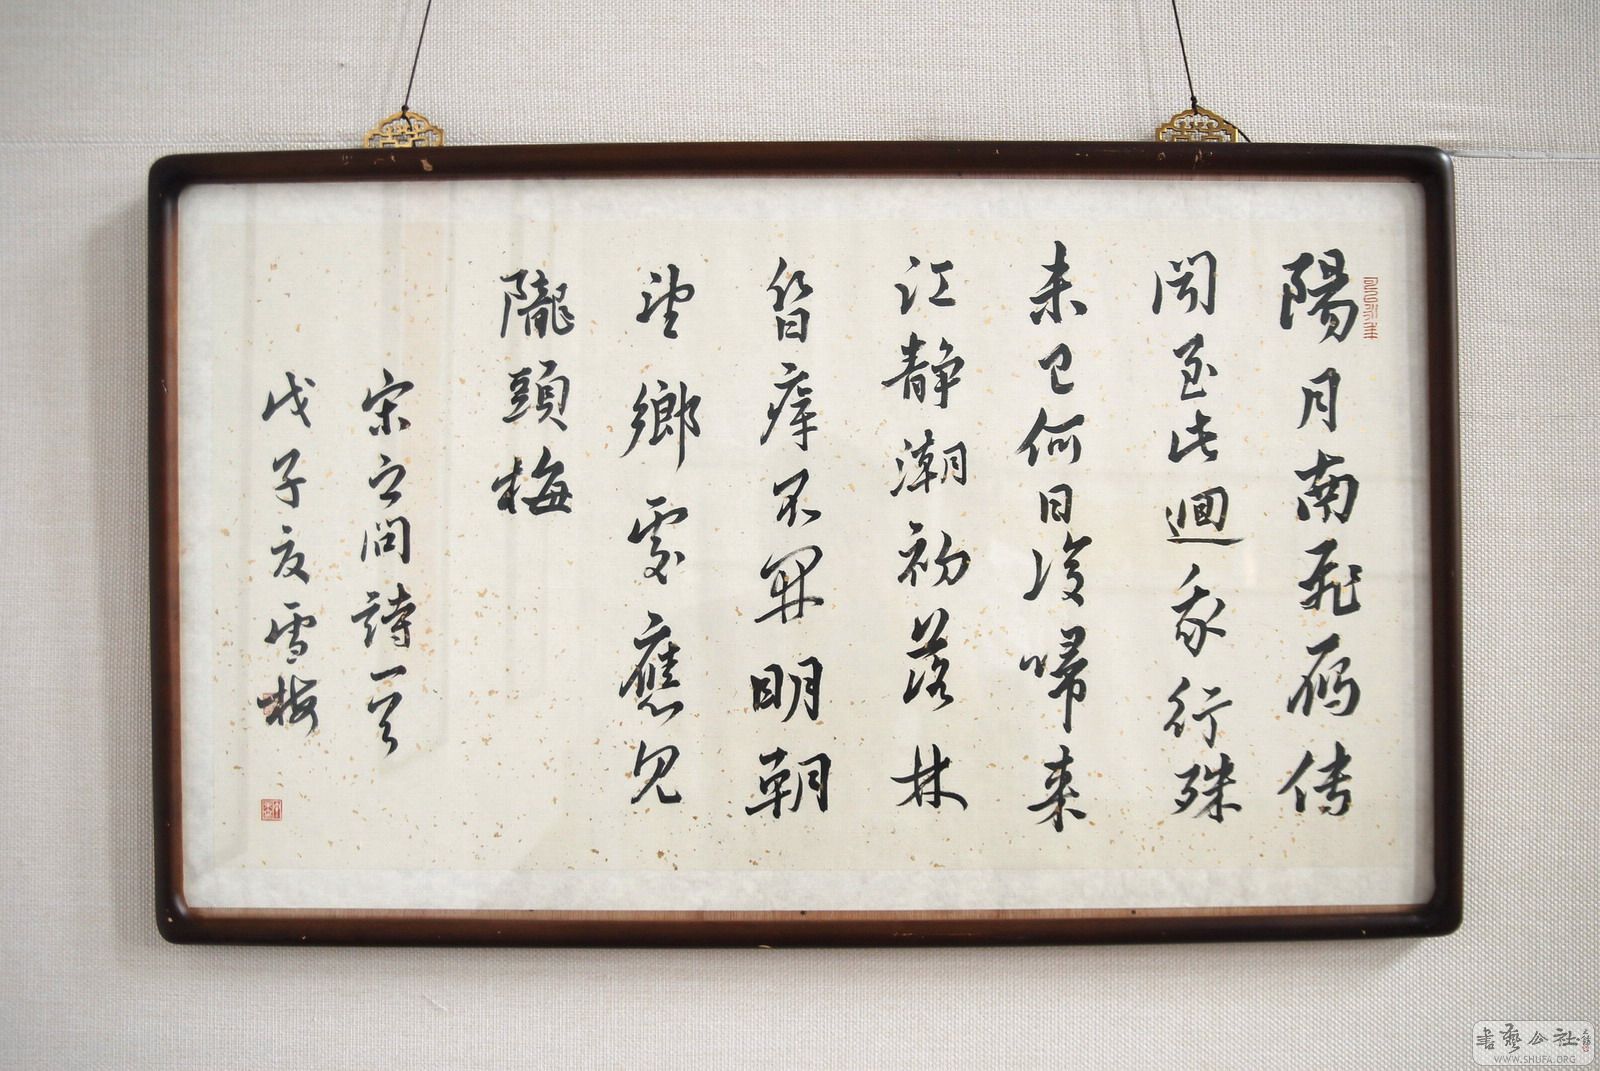 陽月南飛鴈传
聞至此迴我行殊
未已何日復歸来
江静潮初落林
昏瘴不開明朝
望鄉處應見
隴頭梅
宋之問詩一首
戊子夏雪梅
書藝公社
WWW.SHUFA.ORG